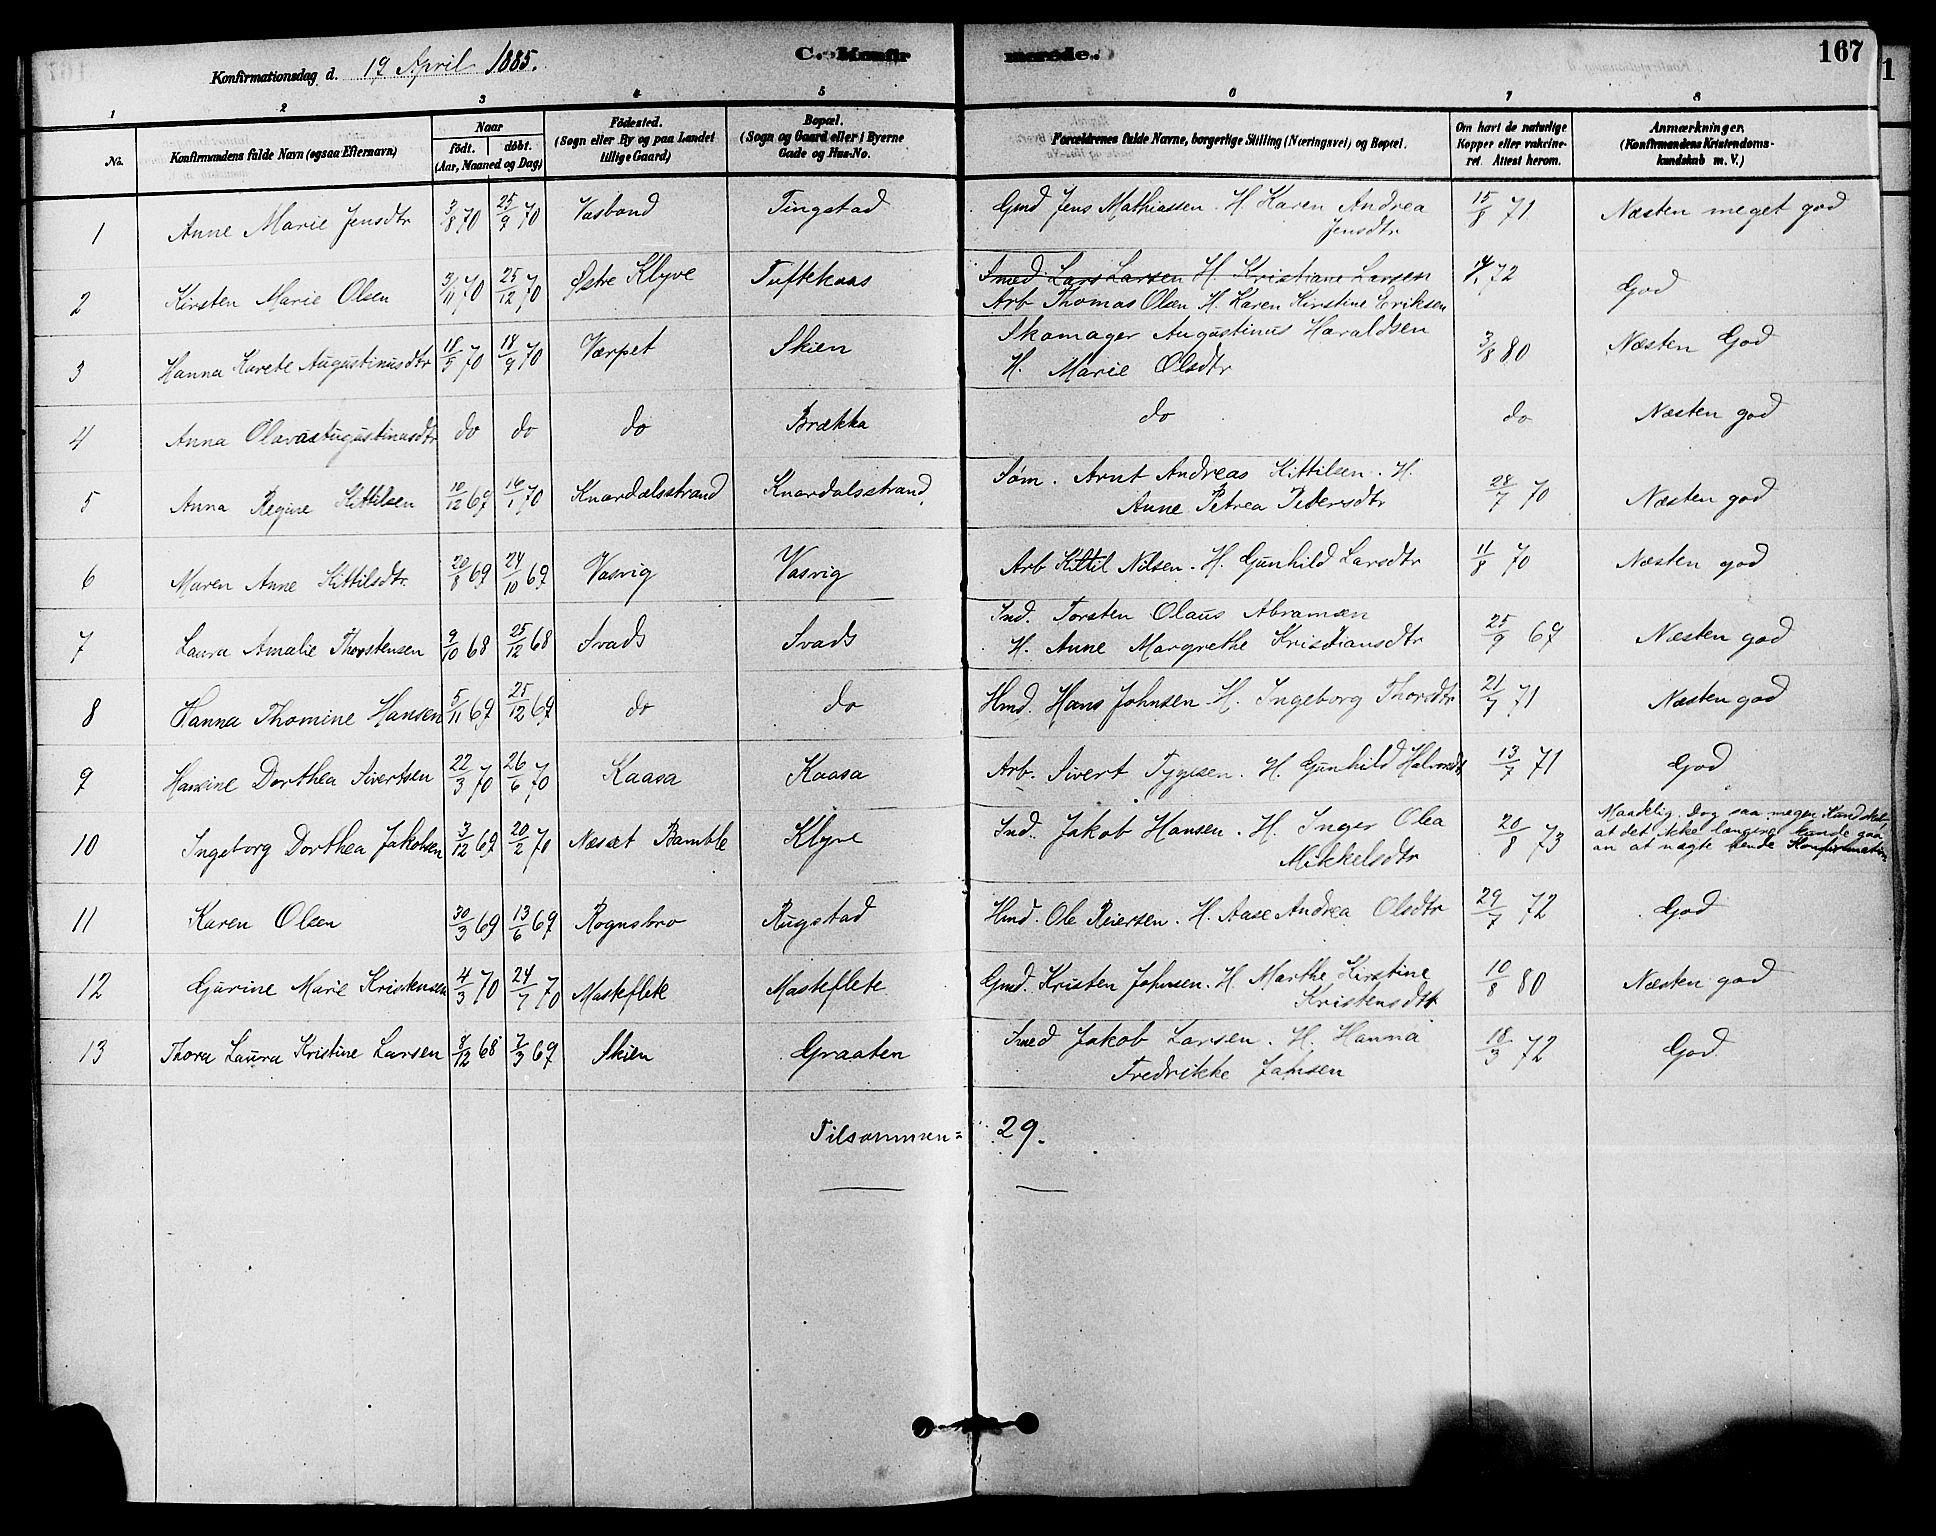 Konfirmationsdag d. 19 April 1885.
C. Konfirmerede.
167
1 2 3 4 5 6 7 8
No. Konfirmandens fulde Navn (ogsaa Efternavn) Naar født. døbt. (Aar, Maaned og Dag) Fødested. (Sogn eller By og paa Landet tillige Gaard) Bopæl. (Sogn og Gaard eller i Byerne Gade og Hus-No. Forældrenes fulde Navne, borgerlige Stilling (Næringsvei) og Bopæl. Om havt de naturlige Kopper eller vakcineret. Attest herom. Anmærkninger. (Konfirmandens Kristendomskundskab m. V.)
1 Anne Marie Jensdtr 3/8 70 25/9 70 Vasbond Tingstad Gmd Jens Mathiassen H. Karen Andrea Jensdtr 15/8 71 Næsten meget god
2 Kirsten Marie Olsen 3/11 70 25/12 70 Østre Klyve Tuftekaas Smed Lars Larsen H. Kristiane Larsen
Arb Thomas Olsen H. Karen Kirstine Eriksen 72 God
3 Hanna Karete Augustinusdtr 18/5 70 18/9 70 Værpet Skien Skomager Augustinus Haraldsen
H. Marie Olsdtr 3/8 80 Næsten God
4 Anna Olava Augustinusdtr do do do Brække do do Næsten god
5 Anna Regine Kittilsen 10/12 69 16/1 70 Knardalsstrand Knardalsstrand Søm. Arnt Andreas Kittilsen. H.
Anne Petrea Petersdtr 28/7 70 Næsten god
6 Maren Anne Kittilsdtr. 20/8 69 24/10 69 Vasvig Vasvig Arb Kittil Nilsen. H. Gunhild Larsdtr 11/8 70 Næsten god
7 Laura Amalie Thorstensen 9/10 68 25/12 68 Svads Svads Ind. Torsten Olaus Abramsen
H. Anne Margrethe Kristiansdtr 25/9 69 Næsten god
8 Hanna Thomine Hansen 5/11 69 25/12 69 do do Hmd. Hans Johnsen H. Ingeborg Thorsdtr 21/7 71 Næsten god
9 Hansine Dorthea Sivertsen 22/3 70 26/6 70 Kaasa Kaasa Arb. Sivert Tygesen. H. Gunhild Halvorsdt 13/7 71 God
10 Ingeborg Dorthea Jakobsen 3/12 69 20/2 70 Næset Bamble Klyve Ind. Jakob Hansen. H. Inger Olea
Mikkelsdtr 20/8 73 Maadelig. Dog saa megen Kundskab,
at det ikke længere kunde gaa
an at nægte hende Konfirmation
11 Karen Olsen 30/3 69 13/6 69 Rognsbro Rugstad Hmd. Ole Reiersen. H. Aase Andrea Olsdtr 29/7 72 God
12 Gurine Marie Kristensen 4/3 70 24/7 70 Masteflete Masteflete Gmd. Kristen Johnsen. H. Marthe Kirstine
Kristensdtr 10/8 80 Næsten god
13 Thora Laura Kristine Larsen 8/12 68 7/3 69 Skien Graaten Smed Jakob Larsen. H. Hanna
Fredrikke Jansen 18/3 72 God
Tilsammen = 29.